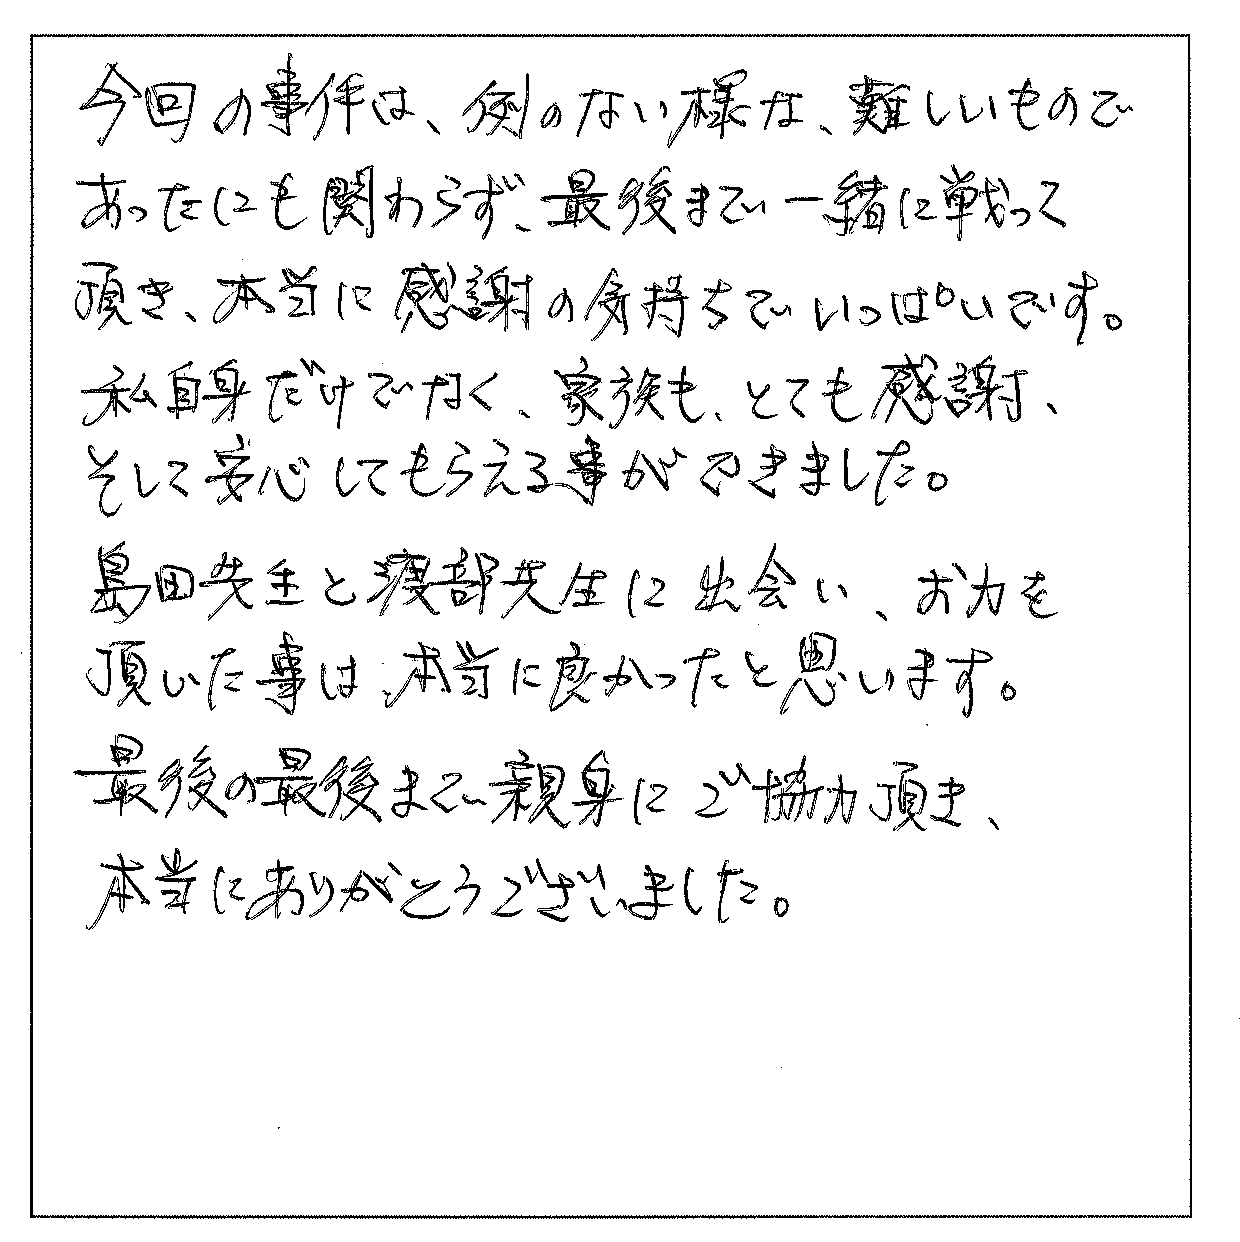 今回の事件は、例のない様な、難しいもので
あったにも関わらず、最後まで一緒に戦って
頂き、本当に感謝の気持ちでいっぱいです。
私自身だけでなく、家族も、とても感謝、
そして安心してもらえる事ができました。
島田先生と渡部先生に出会い、お力を
頂いた事は、本当に良かったと思います。
最後の最後まで親身にご協力頂き、
本当にありがとうございました。